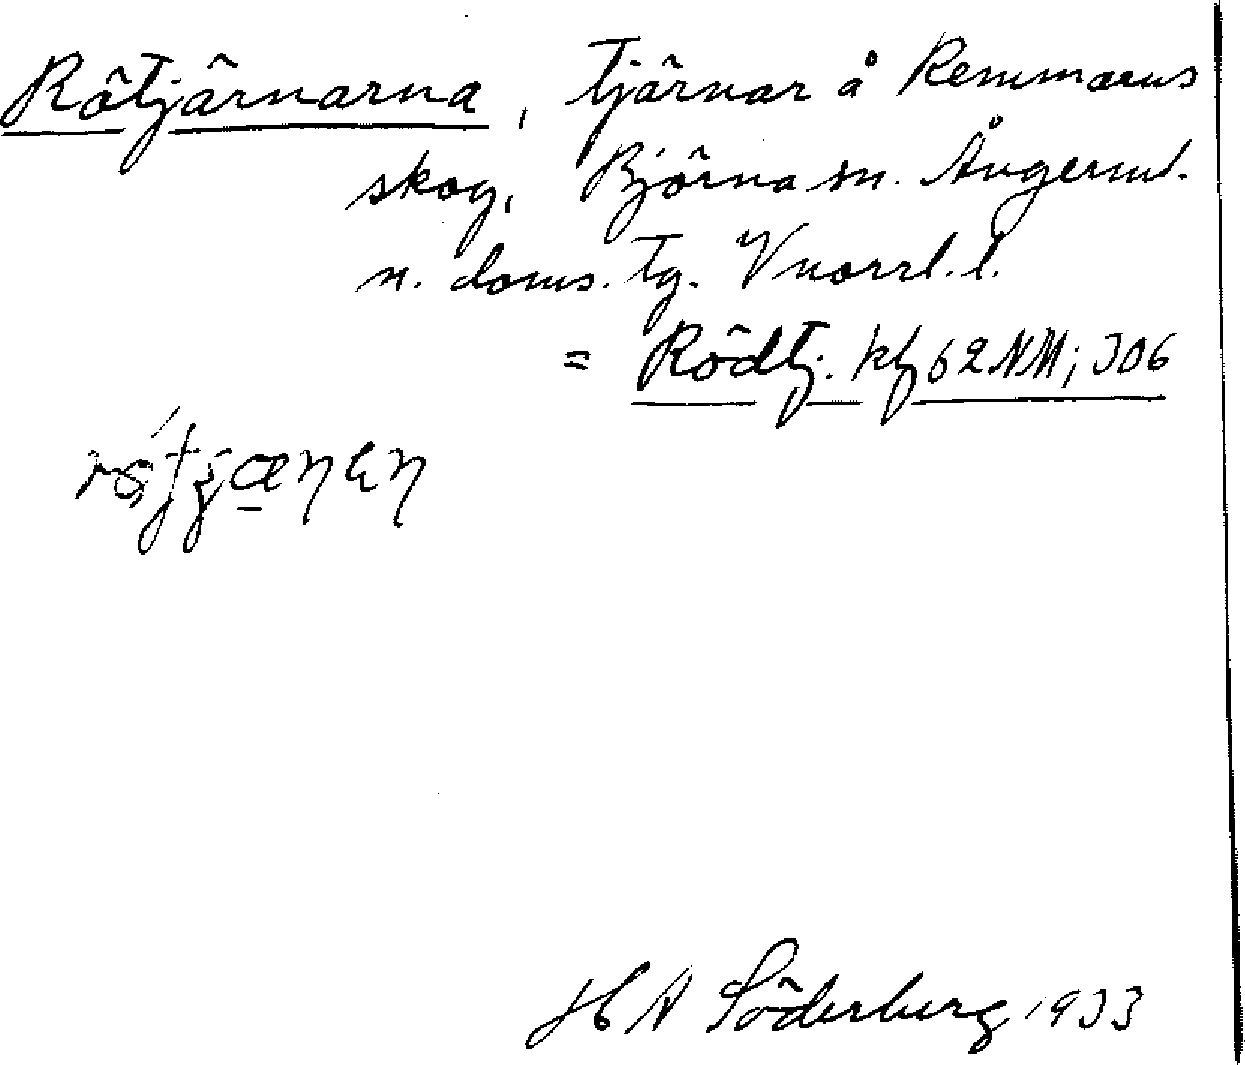 Rötjärnarna, tjärnar å Remmarns
skog, Björna sn. Ångerml.
n. doms. tg. Vnorrl. l.
= Rödtj. kf 62 NM; J06
H A Söderberg 1933